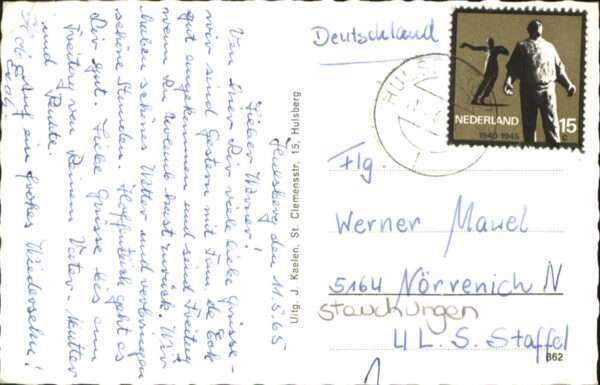 Hulsberg den 11.5.65
Lieber Werner!
Von hier Dir viele liebe Grüsse
wir sind Gestern mit
gut angekommen und sind Freitag
wenn Du wieder zurück. Wir
haben schönes Wetter und verbringen
schöne Stunden. Hoffentlich geht es
Dir gut. Liebe Grüsse bis am
Freitag von Deinem Vater-Mutter
und
Auf ein frohes Wiedersehn!
Uitg. J. Kaelen, St. Clemensstr. 15, Hulsberg
Deutschland
NEDERLAND
1940 1945
15 c
Flg.
Werner Mawel
5164 Nörvenich N
4 L. S. Staffel
862